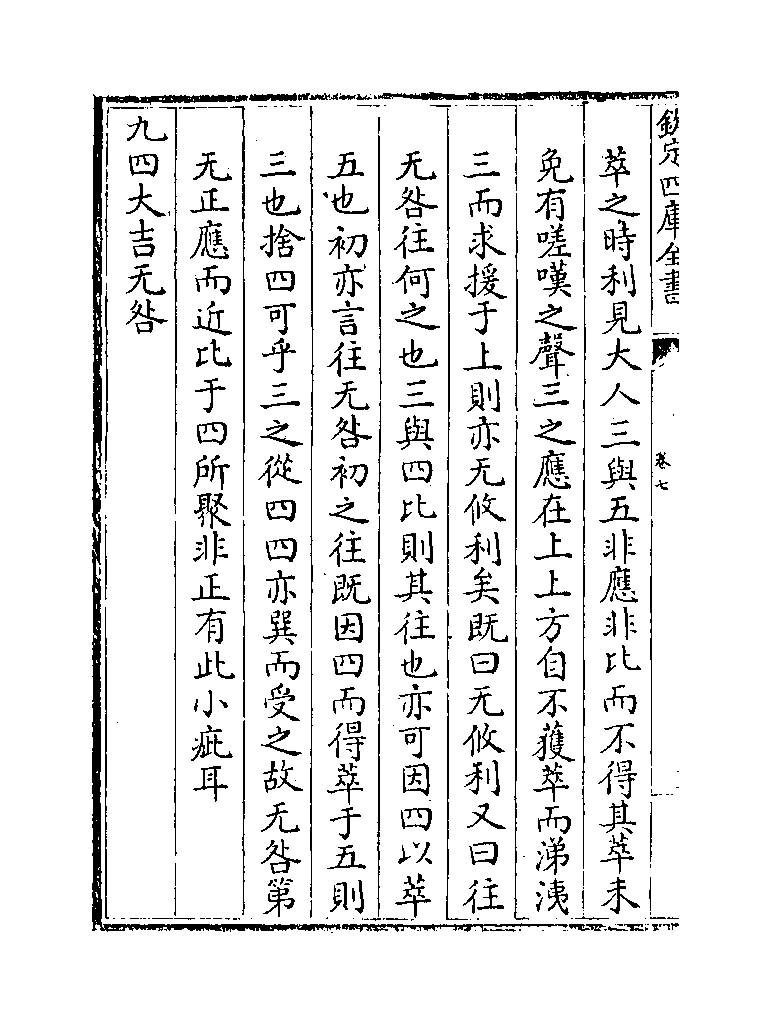 欽定四庫全書
卷七
萃之時利見大人三與五非應非比而不得其萃未
免有嗟嘆之聲三之應在上上方自不獲萃而涕洟
三而求援于上則亦无攸利矣既曰无攸利又曰往
无咎往何之也三與四比則其往也亦可因四以萃
五也初亦言往无咎初之往既因四而得萃于五則
三也捨四可乎三之從四四亦巽而受之故无咎第
无正應而近比于四所聚非正有此小疵耳
九四大吉无咎